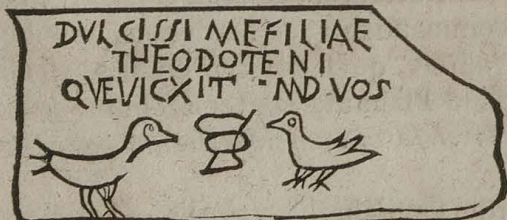 DVLCISSI MEFILIAE
THEODOTENI
QVEVICXIT ·ND VOS